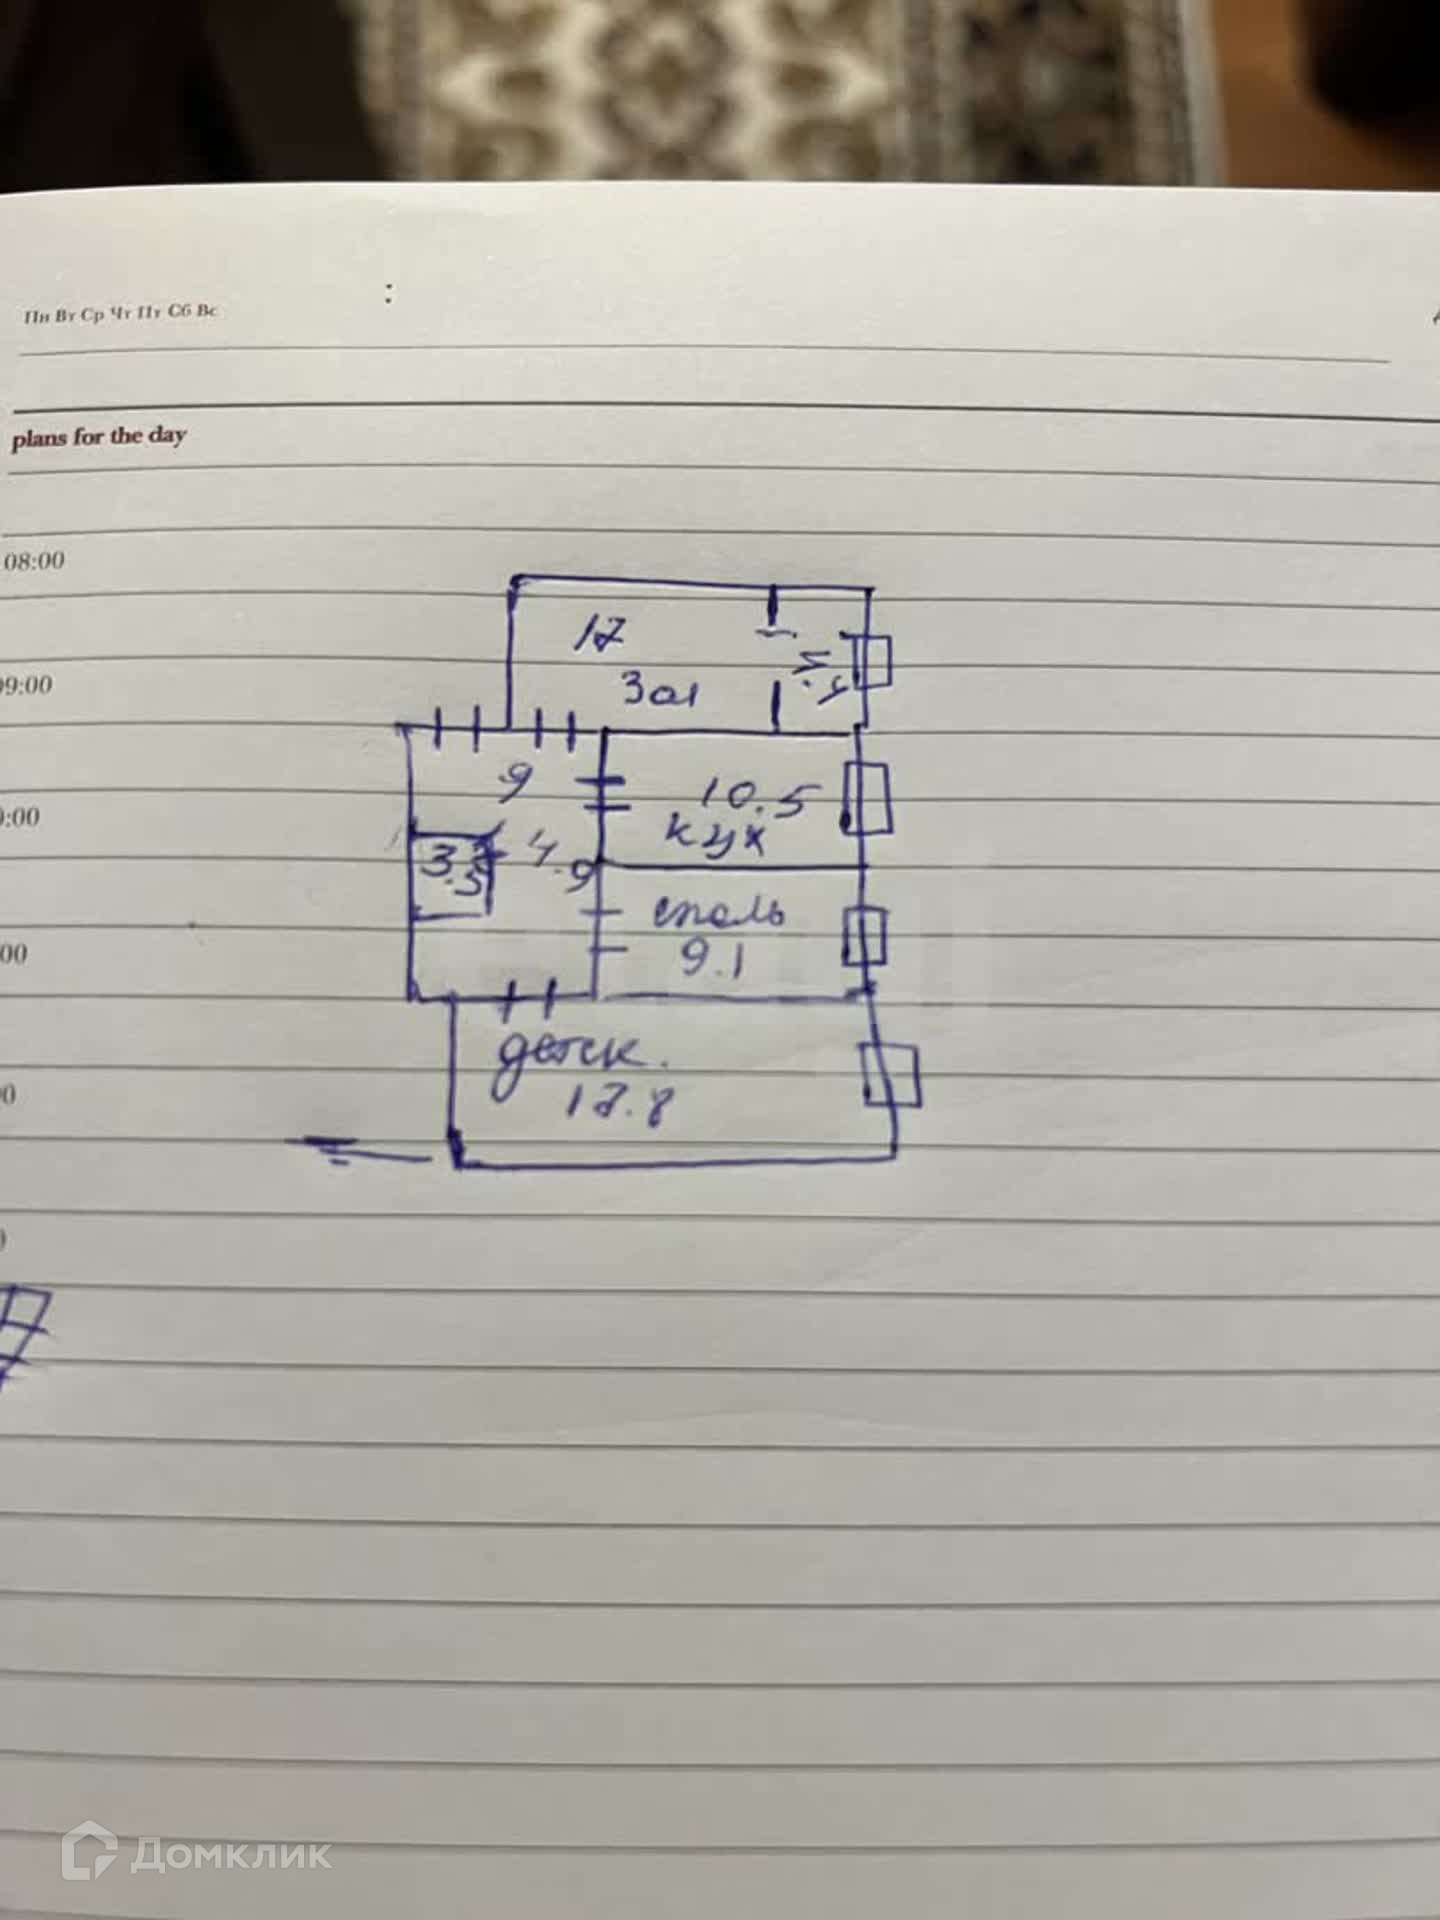 Пн Вт Ср Чт Пт Сб Вс
:
plans for the day
08:00
09:00
0:00
00
00
0
17
Зал
9
10.5
кух
3.5
4.9
спаль
9.1
детск.
Домклик